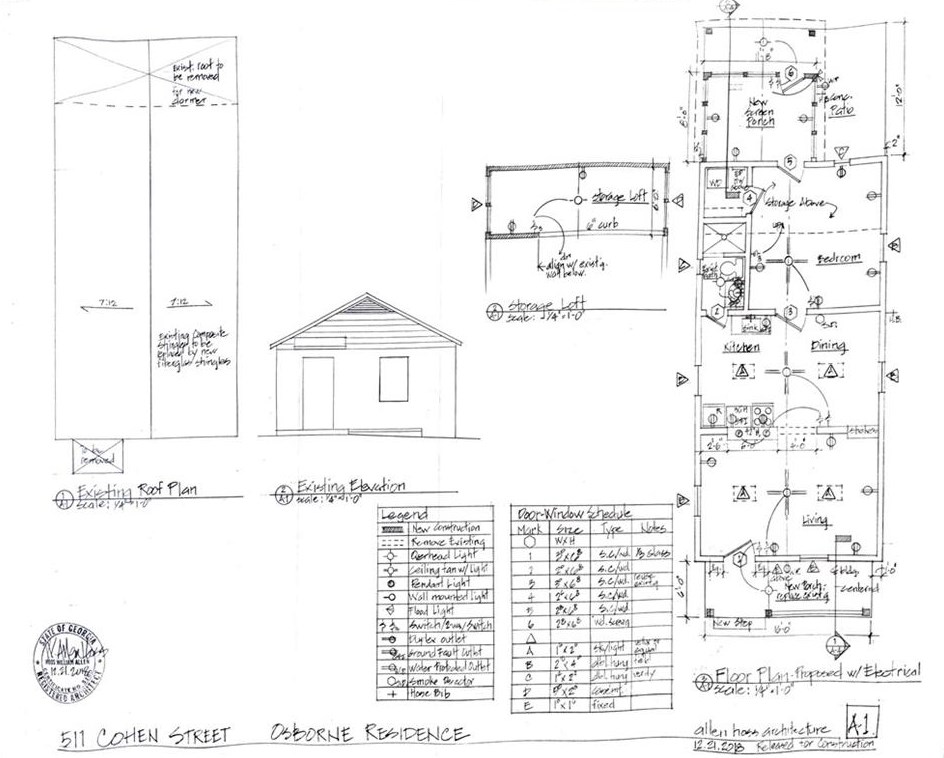 Exist. roof to
be removed
for new
dormer
7:12
7:12
Existing Composite
shingles to be
replaced by new
fiberglass shingles
To be
removed
1
A1
Existing Roof Plan
scale: 1/4"=1'-0"
2
A1
Existing Elevation
scale: 1/4"=1'-0"
Storage Loft
6" curb
dn
align w/ exist'g.
wall below.
Storage Loft
scale: 1/4"=1'-0"
New
Screen
Porch
Conc.
Patio
12'-0"
8'-0"
2"
5
4
WD
Storage Above
up
Bedroom
2
3
Kitchen
Dining
A
A
R
2'-6"
6'-0"
4'-0"
A
A
Living
New Porch
replace exist'g
centered
New Step
6'-0"
2'-0"
16'-0"
Floor Plan-Proposed w/ Electrical
scale: 1/4"=1'-0"
Legend
New Construction
Remove Existing
Overhead Light
Ceiling fan w/Light
Pendant Light
Wall mounted light
Flood Light
Switch/3way Switch
Duplex outlet
Ground Fault Outlet
Water Protected Outlet
Smoke Detector
Hose Bib
Door-Window Schedule
Mark Size Type Notes
WxH
1 s.c/wd. glass
2 s.c/wd
3 s.c/wd. reuse
4 s.c/wd
5 s.c/wd
6 wd. screen
A skylight
B dbl hung
C dbl hung verify
D casem't
E 1°x1° fixed
STATE OF GEORGIA
HOSS WILLIAM ALLEN
12.21.2018
REGISTERED ARCHITECT
511 COHEN STREET OSBORNE RESIDENCE
allen hoss architecture
A.1
12.21.2018 Released for Construction